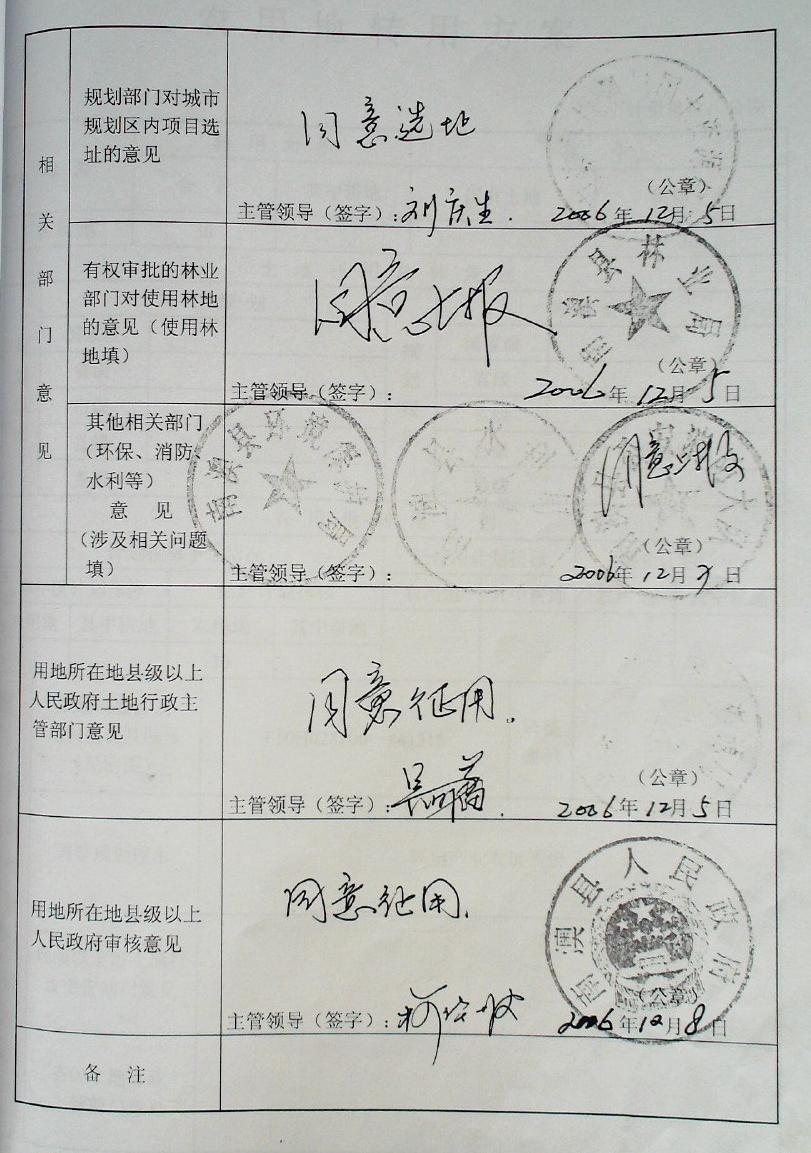 相关部门意见
规划部门对城市
规划区内项目选
址的意见
同意选地
(公章)
主管领导(签字):刘庆生. 2006年12月5日
有权审批的林业
部门对使用林地
的意见(使用林
地填)
同意上报
南澳县林业局
(公章)
主管领导(签字): 2006年12月5日
其他相关部门
(环保、消防、
水利等)
意 见
(涉及相关问题
填)
南澳县环境保护局
县水
同意上报
(公章)
主管领导(签字): 2006年12月 日
用地所在地县级以上
人民政府土地行政主
管部门意见
同意征用.
(公章)
主管领导(签字): 2006年12月5日
用地所在地县级以上
人民政府审核意见
同意征用.
南澳县人民政府
(公章)
主管领导(签字): 2006年12月8日
备 注